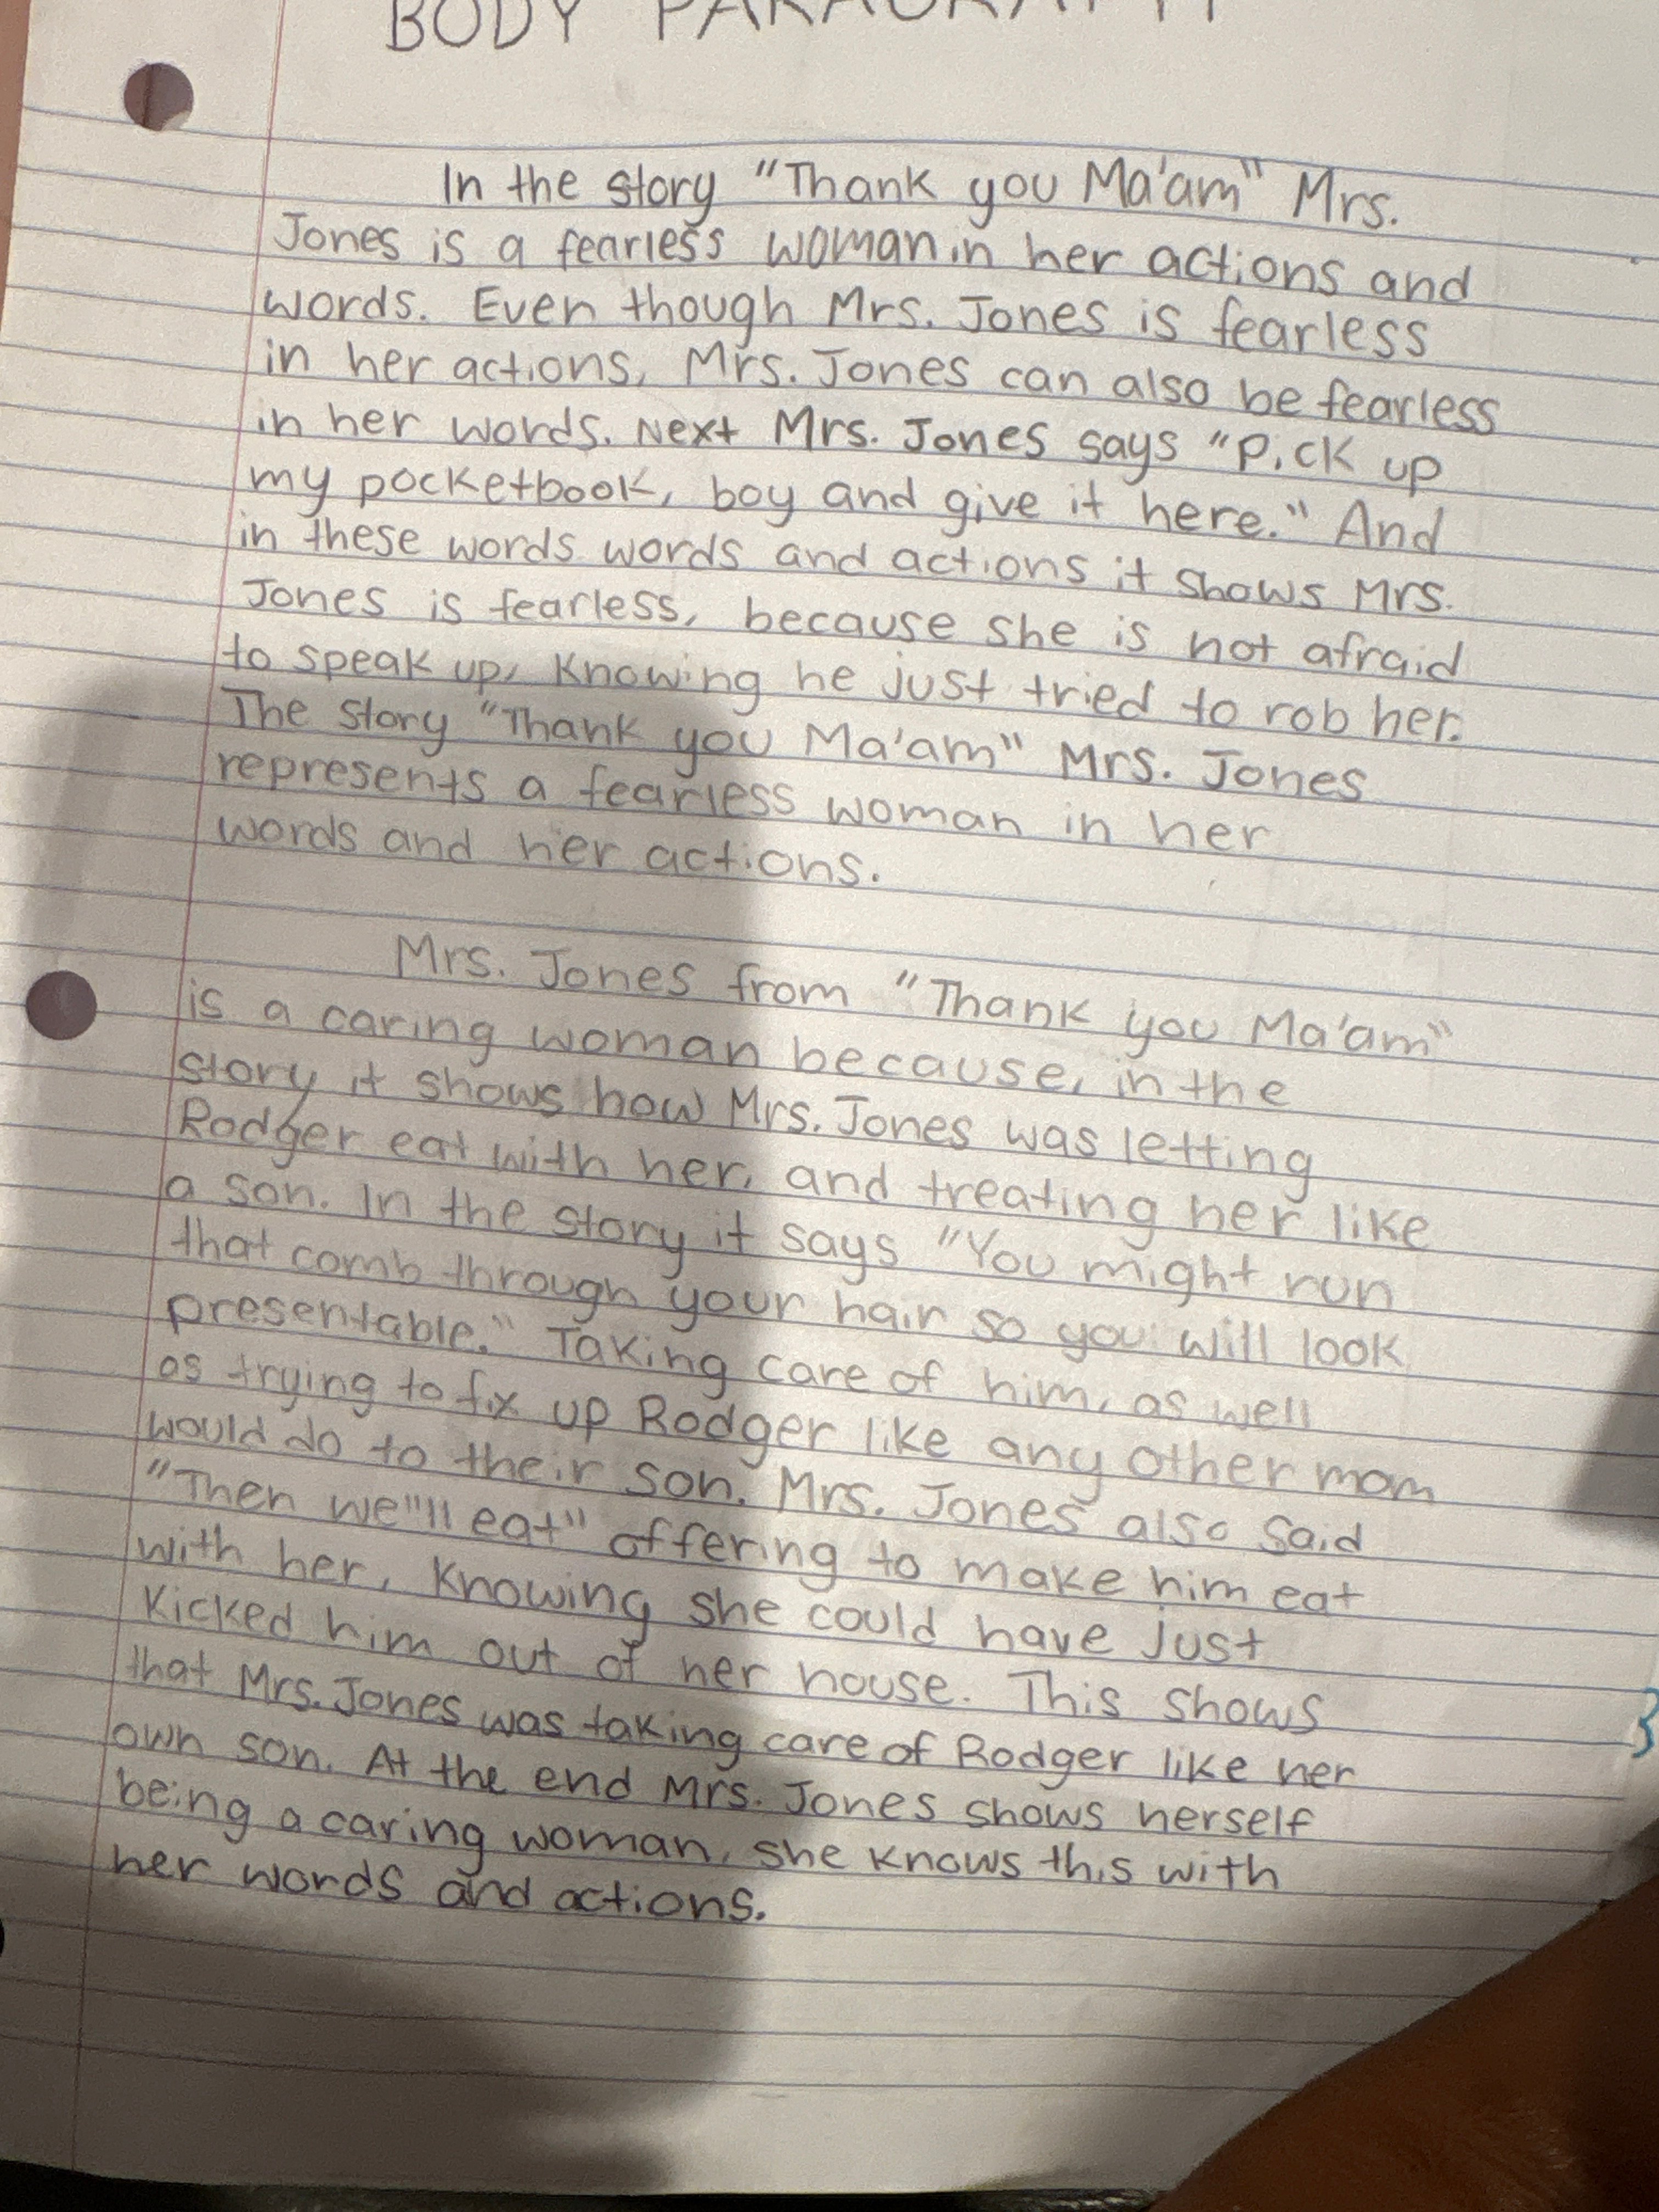 BODY PARAGRAPH
In the story "Thank you Ma'am" Mrs.
Jones is a fearless woman in her actions and
words. Even though Mrs. Jones is fearless
in her actions, Mrs. Jones can also be fearless
in her words. Next Mrs. Jones says "Pick up
my pocketbook, boy and give it here." And
in these words words and actions it shows Mrs.
Jones is fearless, because she is not afraid
to speak up, knowing he just tried to rob her.
The story "Thank you Ma'am" Mrs. Jones
represents a fearless woman in her
words and her actions.
Mrs. Jones from "Thank you Ma'am"
is a caring woman because, in the
story it shows how Mrs. Jones was letting
Rodger eat with her, and treating her like
a son. In the story it says "You might run
that comb through your hair so you will look
presentable." Taking care of him, as well
as trying to fix up Rodger like any other mom
would do to their son. Mrs. Jones also said
"Then we"ll eat" offering to make him eat
with her, knowing she could have just
kicked him out of her house. This shows
that Mrs. Jones was taking care of Rodger like her
own son. At the end Mrs. Jones shows herself
being a caring woman, she knows this with
her words and actions.